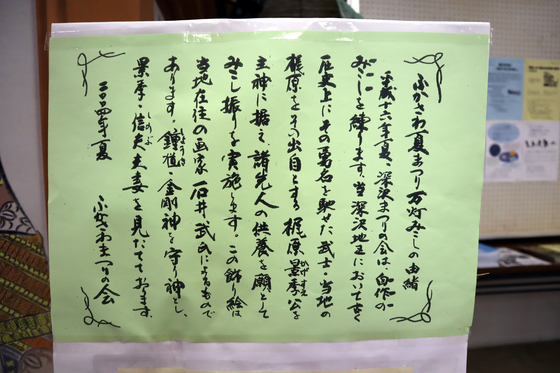 ふかさわ夏まつり万灯みこしの由緒
平成十六年夏、深沢まつりの会は自作の
みこしを練ります。当深沢地区において古く
歴史上にその勇名を馳せた武士・当地の
梶原をその出自とする梶原景季公を
かげすえ
主神に据え諸先人の供養を願として
みこし振りを実施します。この飾り絵は
当地在住の画家石井武氏によるもので
あります。鍾馗・金剛神を守り神とし、
しょうき
景季・信夫夫妻を見たてております。
しのぶ
二〇〇四年夏
ふかさわまつりの会